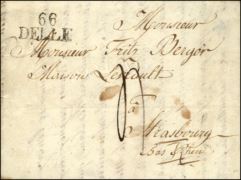 Monsieur
66
DELLE
Monsieur Fritz Berger
Maison
à
Strasbourg
Bas Rhin